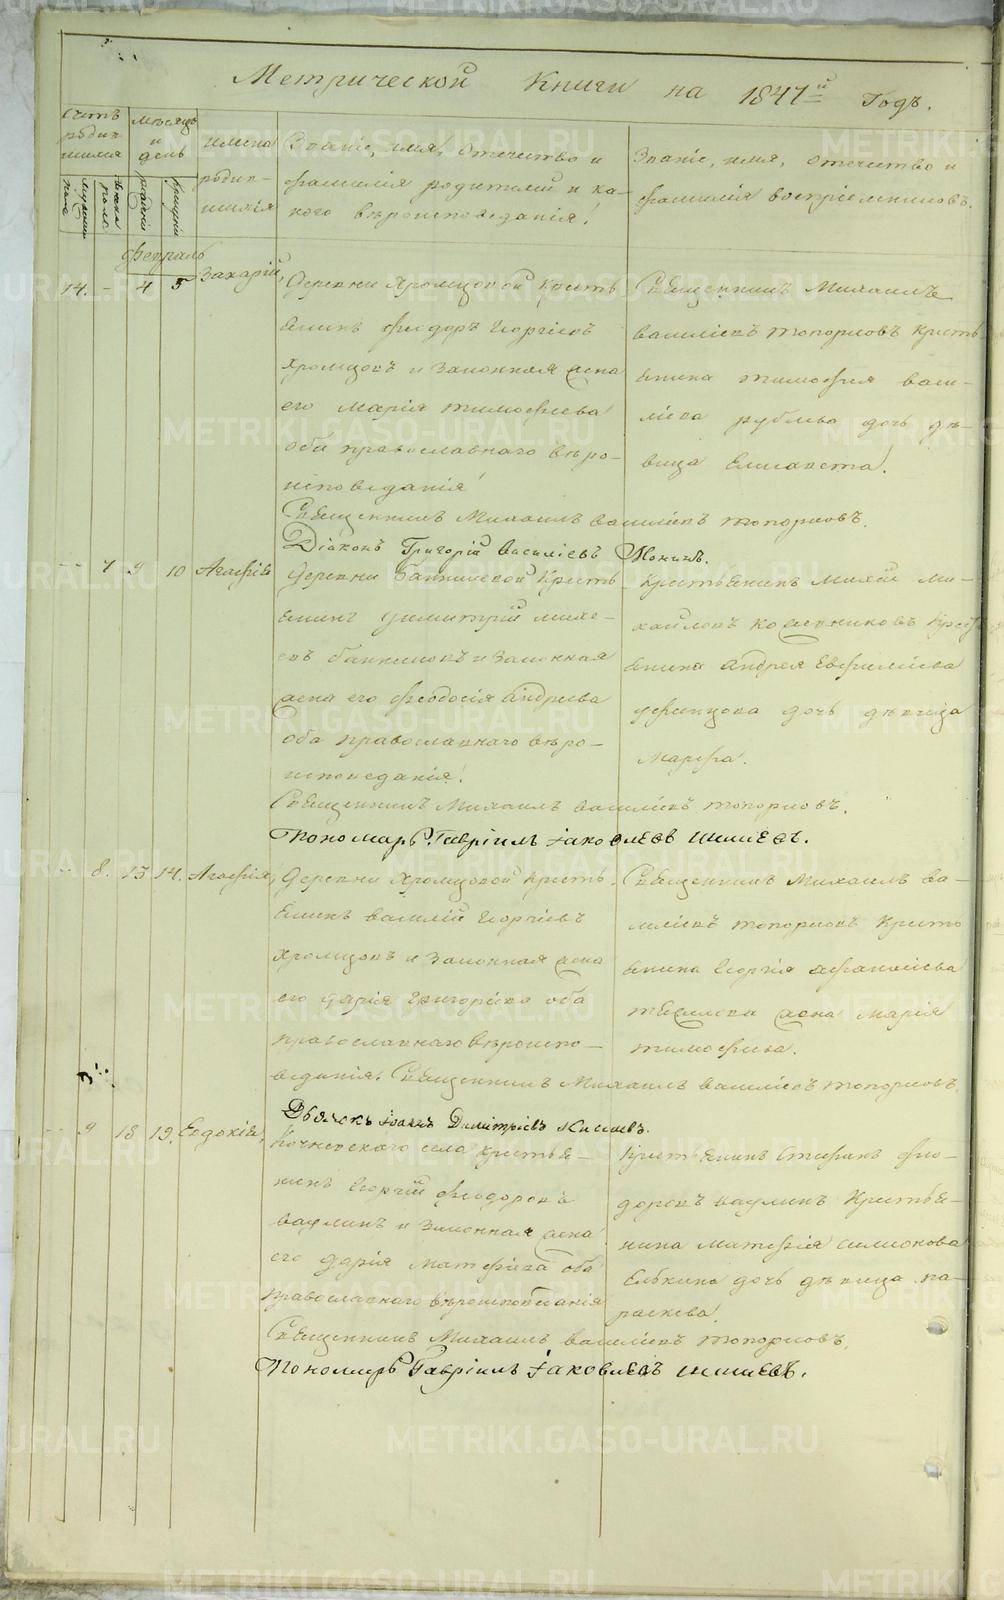 Метрической Книги на 1847й Годъ.
Счетъ родившихся
мужеска пола
женска полъ
Мѣсяцъ и день
рожденія
крещенія
имена родившихся
Званіе, имя, отчество и
фамилія родителей и ка-
кого вѣроисповеданія.
Званіе, имя, отчество и
фамилія воспріемниковъ.
Февраль
14. - 4 5 Захарій,
Деревни Хромцовой Кресть
янинъ Феодоръ Георгіевъ
Хромцовъ и Законная жена
его Марія Тимофѣева
оба православнаго вѣро-
исповеданія
Священникъ Михаилъ
Василіевъ Топорковъ Кресть-
янина Тимофея Васи-
ліева дочь дѣ-
вица Елисавета.
Священникъ Михаилъ Василіевъ Топорковъ.
Діаконъ Григорій Василіевъ
-- 7 9 10 Агафія
Деревни Банниковой Кресть
янинъ Димитрій Михе-
евъ Банниковъ и Законная
жена его Феодосія Андреева
оба православнаго вѣро-
исповеданія.
Крестьянинъ Михей Ми-
хайловъ Кожевниковъ Крест
янина Андрея Евфиміева
дочь дѣвица
Марфа.
Священникъ Михаилъ Василіевъ Топорковъ.
Пономарь Гавріилъ Іаковлевъ Шишевъ.
-- 8. 13 14. Агафія,
Деревни Хромцовой Кресть-
янинъ Василій Георгіевъ
Хромцовъ и Законная жена
его Дарія Григоріева оба
православнаго вѣроиспо-
веданія. Священникъ Михаилъ Василіевъ Топорковъ.
Священникъ Михаилъ Ва-
силіевъ Топорковъ Кресть
янина Георгія Афанасіева
жена Марія
Тимофѣева.
Дьячокъ Іоаннъ Димитріевъ Киселевъ.
-- 9 18 19. Евдокія,
Кочневского села Крестья-
нинъ Георгій Феодоровъ
Ваулинъ и Законная жена
его Дарія Матфѣева оба
православнаго вѣроисповеданія
Крестьянинъ Стефанъ Фео-
доровъ Ваулинъ Крестья-
нина Матфія Симіонова
Елькина дочь дѣвица Па-
раскева.
Священникъ Михаилъ Василіевъ Топорковъ.
Пономарь Гавріилъ Іаковлевъ Шишевъ.
METRIKI.GASO-URAL.RU